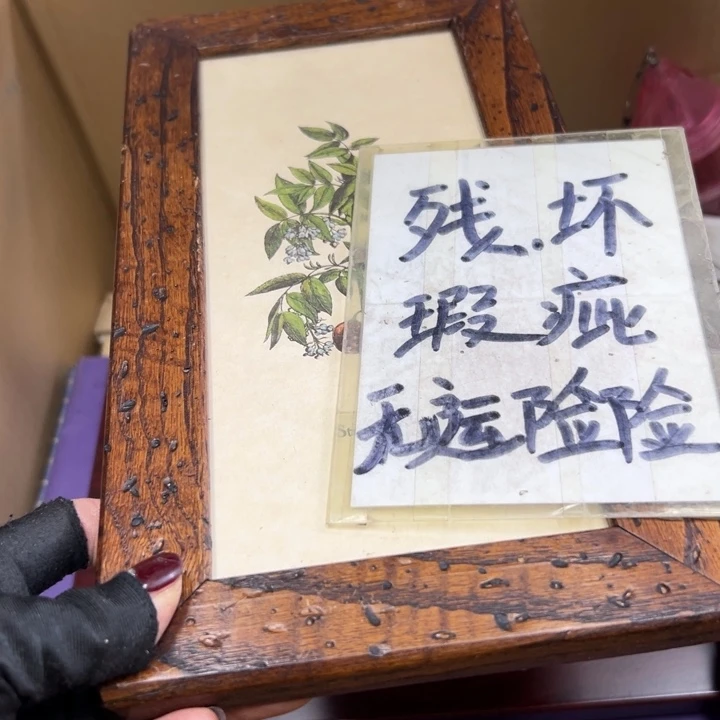 残.坏
瑕疵
无运险险
St